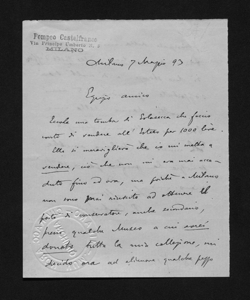 Pompeo Castelfranco
Via Principe Umberto N. 5
MILANO
Milano 7 Maggio 93
Egregio amico
Eccole una tomba di Golasecca che faccio
conto di vendere all' Estero per 1000 lire.
Ella si meraviglierà che io mi metta a
vendere, ciò che non mi era mai acca-
duto fino ad ora, ma poiché a Milano
non sono mai riuscito ad ottenere il
posto di conservatore, anche secondario,
presso qualche Museo a cui avrei
donato tutta la mia collezione, mi
decido ora ad alienare qualche pezzo